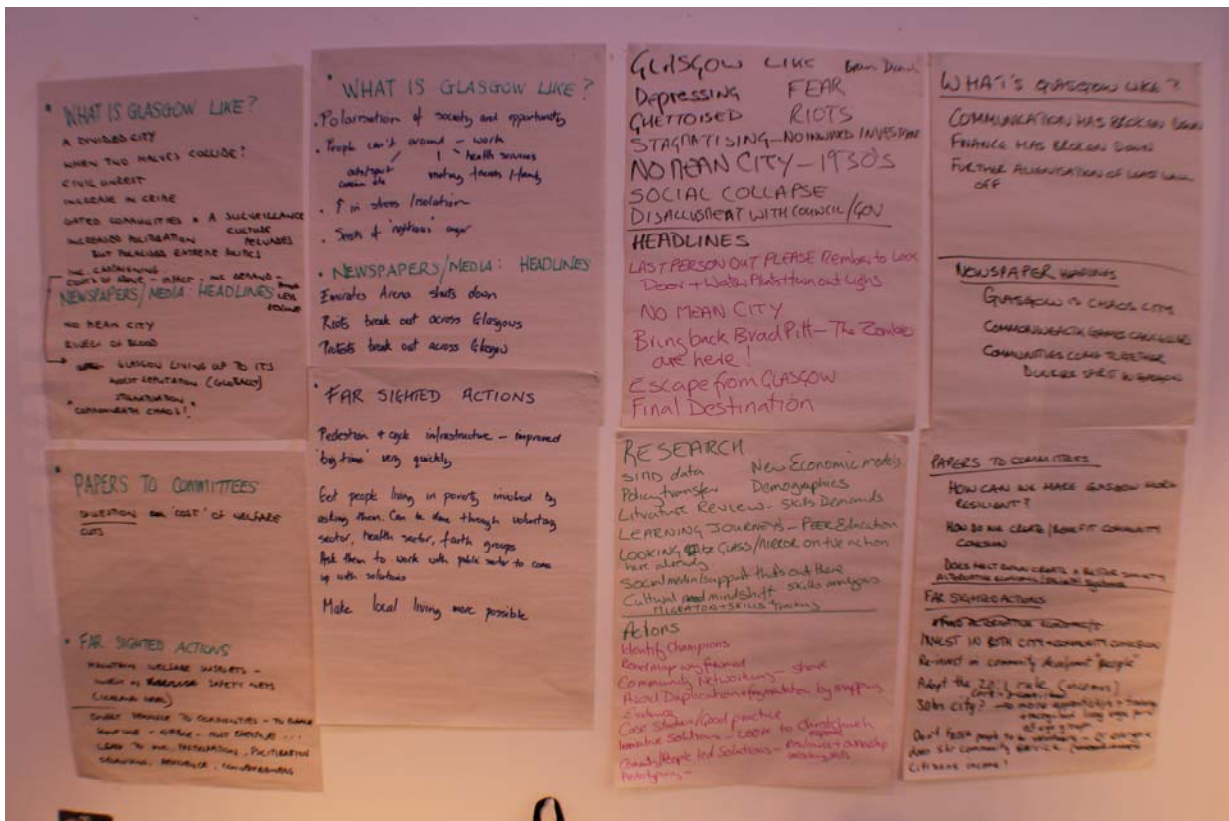 • WHAT IS GLASGOW LIKE?
A DIVIDED CITY
WHEN TWO HALVES COLLIDE?
CIVIL UNREST
INCREASE IN CRIME
GATED COMMUNITIES + A SURVEILLANCE
CULTURE
INCREASED POLITISATION
BUT POLARISED EXTREME POLITICS
NEWSPAPERS/MEDIA: HEADLINES
NO MEAN CITY
RIVERS OF BLOOD
GLASGOW LIVING UP TO ITS
WORST REPUTATION (GLOBALLY)
"COMMONWEALTH CHAOS!"
• PAPERS TO COMMITTEES
'COST' OF WELFARE
CUTS
• FAR SIGHTED ACTIONS
MAINTAIN WELFARE BUDGETS -
SAFETY NETS
• WHAT IS GLASGOW LIKE?
• Polarisation of society and opportunity
• People can't around - work
health services
visiting friends / family
• ↑ in stress / isolation
• Seeds of righteous anger
• NEWSPAPERS/MEDIA: HEADLINES
Emirates Arena shuts down
Riots break out across Glasgow
Protests break out across Glasgow
• FAR SIGHTED ACTIONS
Pedestrian + cycle infrastructure - improved
'big time' very quickly
Get people living in poverty involved by
asking them. Can be done through voluntary
sector, health sector, faith groups
Ask them to work with public sector to come
up with solutions
Make local living more possible
GLASGOW LIKE
Depressing FEAR
GHETTOISED RIOTS
STAGMATISING - NO INWARD INVESTMENT
NO MEAN CITY - 1930's
SOCIAL COLLAPSE
WITH COUNCIL/GOV
HEADLINES
LAST PERSON OUT PLEASE Remember to Lock
Door + Water Plants + turn out Lights
NO MEAN CITY
Bring back Brad Pitt - The Zombies
are here!
Escape from GLASGOW
Final Destination
RESEARCH
SIMD data New Economic models
Policy transfer Demographics
Literature Review - Skills Demands
LEARNING JOURNEYS - PEER Education
LOOKING GLASS/MIRROR on the action
here already
Social media/support that's out there
Cultural mindshift skills analysis
MIGRATION + SKILLS Tracking
Actions
Identify Champions
Roadmap way forward
Community Networking - share
Avoid Duplication + fragmentation by mapping
Evidence
Case Studies/Good practice
Innovative solutions - LOOK to Christchurch
Community/People led solutions - Resilience + ownership
Prototyping -
WHAT'S GLASGOW LIKE?
COMMUNICATION HAS BROKEN DOWN
FINANCE HAS BROKEN DOWN
FURTHER ALIENATION OF LESS WELL
OFF
NEWSPAPER HEADLINES
GLASGOW IS CHAOS CITY
COMMONWEALTH GAMES CANCELLED
COMMUNITIES COME TOGETHER
PAPERS TO COMMITTEES
HOW CAN WE MAKE GLASGOW MORE
RESILIENT?
HOW DO WE CREATE / BENEFIT COMMUNITY
COHESION
DOES MELT DOWN CREATE A BETTER SOCIETY
FAR SIGHTED ACTIONS
INVEST IN BOTH CITY + COMMUNITY COHESION
Re-invest in community development "people"
Adopt the 20:1 rule (incomes)
Jobs city?
citizens income!